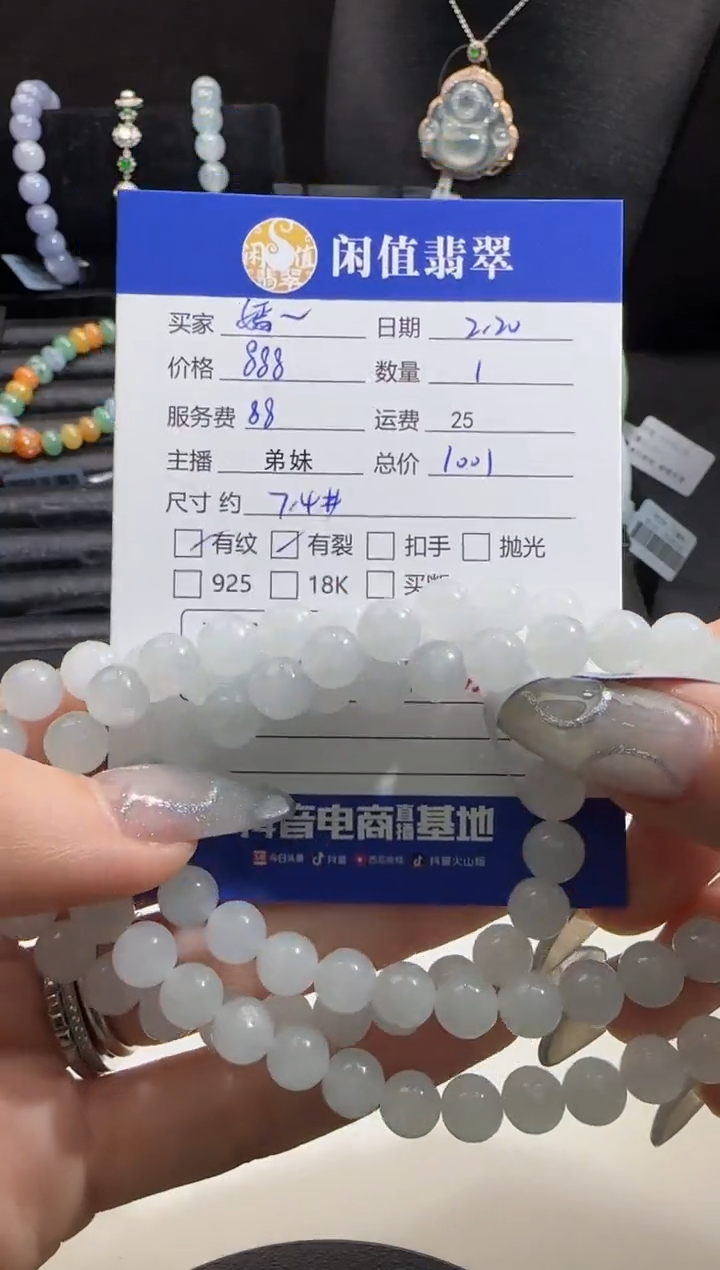 闲值翡翠 闲值翡翠
买家 婿~ 日期 2.20
价格 888 数量 1
服务费 88 运费 25
主播 弟妹 总价 1001
尺寸 约 7.4#
有纹 有裂 扣手 抛光
925 18K 买
抖音电商直播基地
今日头条 抖音 西瓜视频 抖音火山版